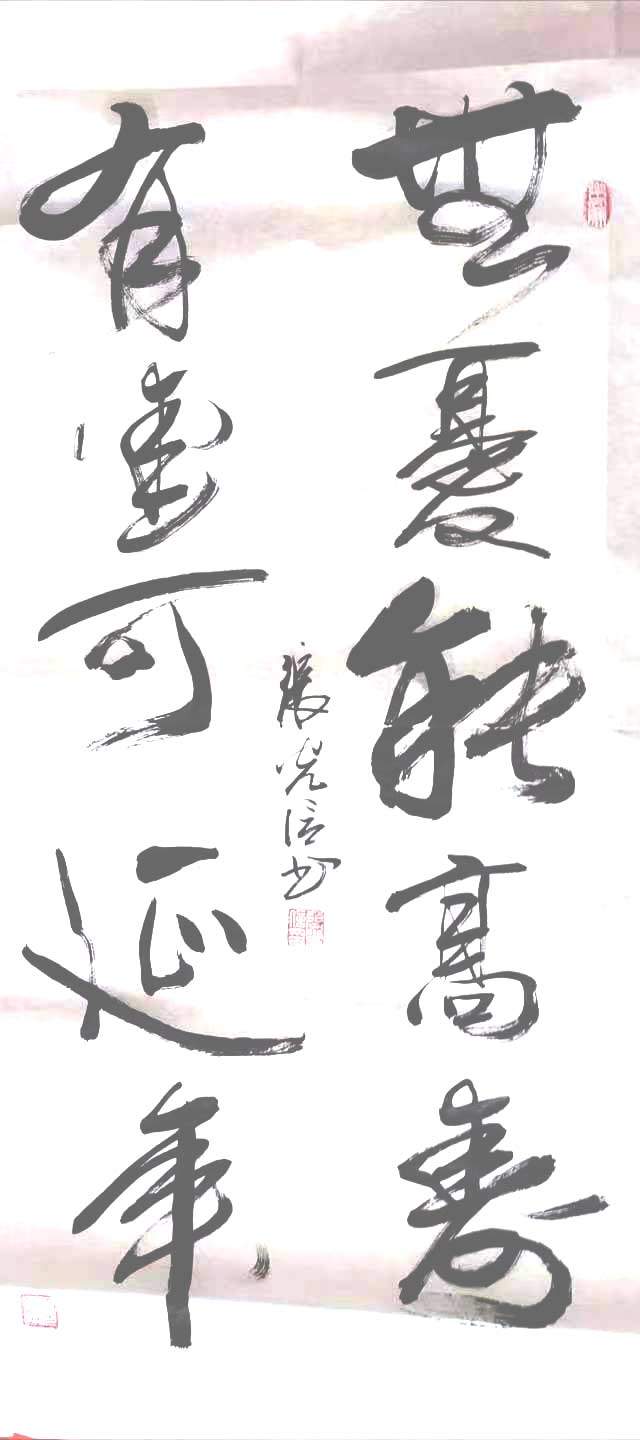 無憂能高壽
有可延年
張光信书